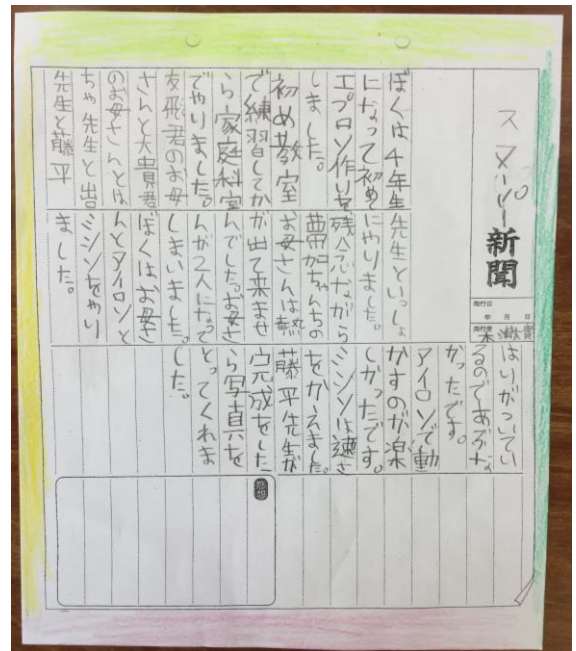 スヌーピー新聞
発行日
年 月 日
発行者
ぼくは4年生
になって初めて
エプロン作りを
しました。
初め教室
で練習してか
ら家庭科室
でやりました。
友飛君のお母
さんと大貴君
のお母さんとは
ちゃ先生と出
先生と藤平
先生といっしょ
にやりました。
残念ながら
ちゃんちの
お母さんは熱
が出て来ませ
んでした。お母さ
んが2人になって
しまいました。
ぼくはお母さ
んとアイロンと
ミシンをやり
ました。
はりがついてい
るのであぶな
かったです。
アイロンで動
かすのが楽
しかったです。
ミシンは速さ
をかえました。
藤平先生が
完成をした
ら写真を
とってくれま
した。
感想